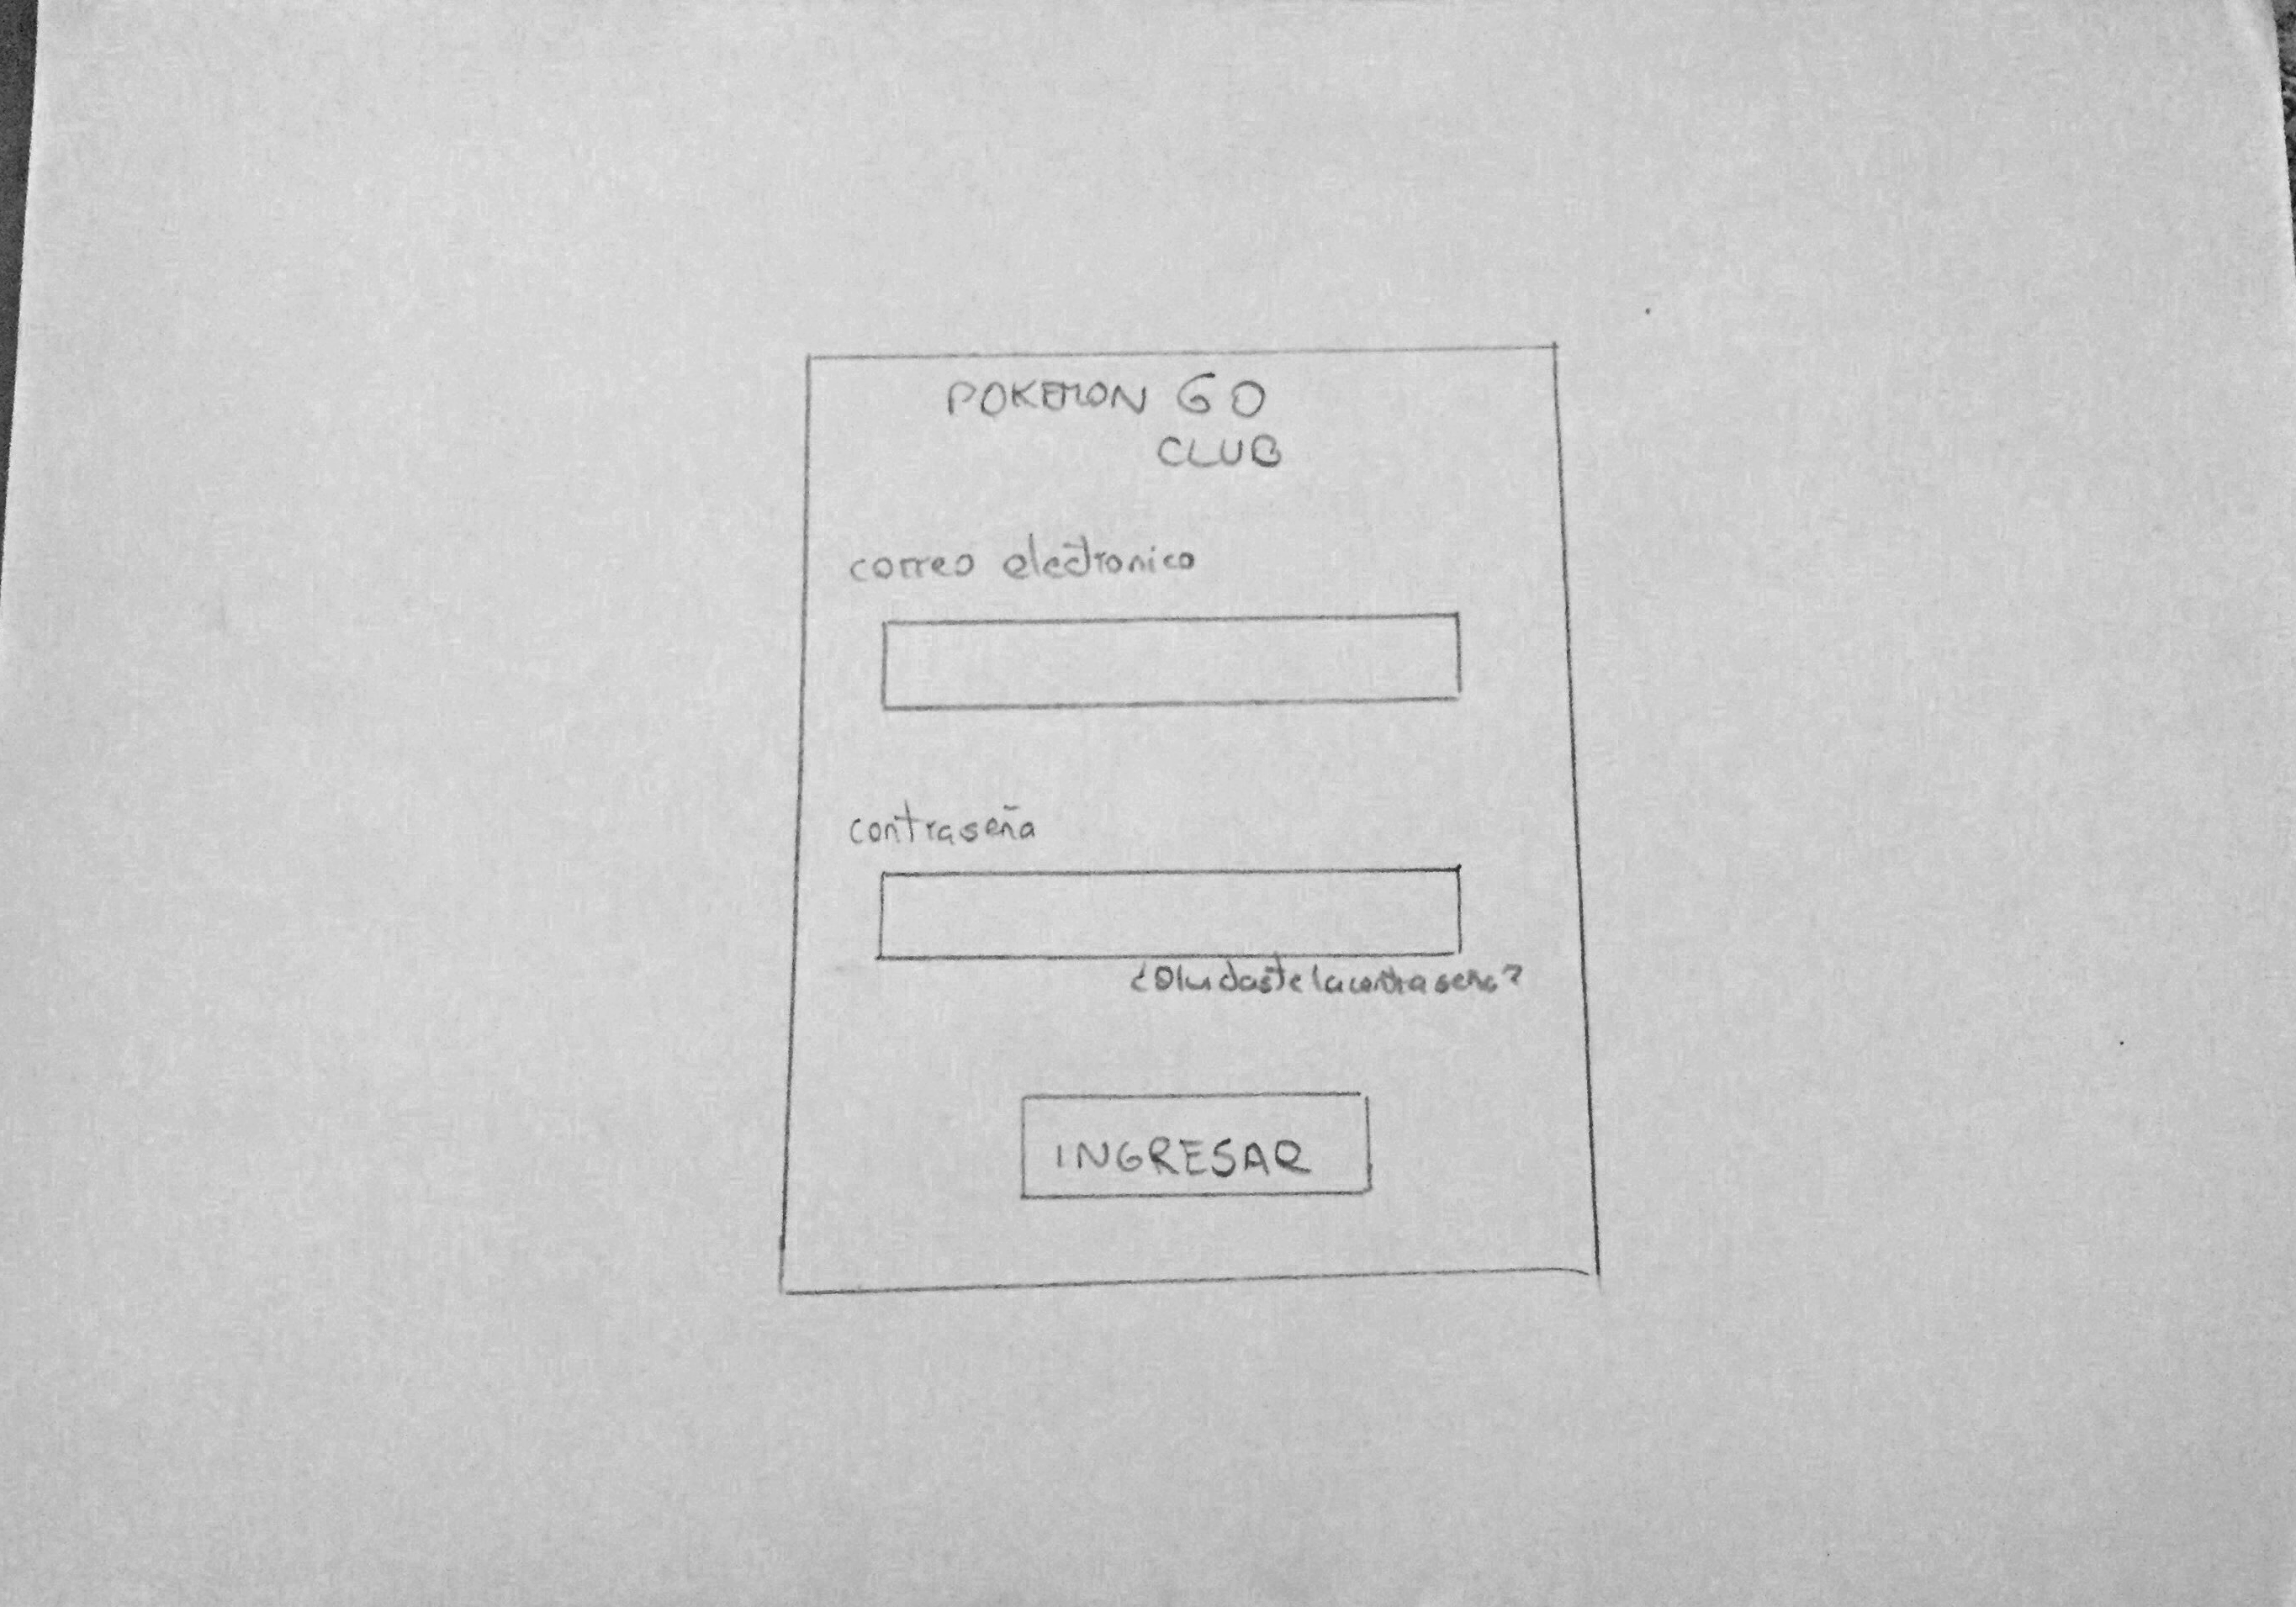 POKEMON GO
CLUB
correo electronico
contraseña
¿Olvidaste la contraseña?
INGRESAR